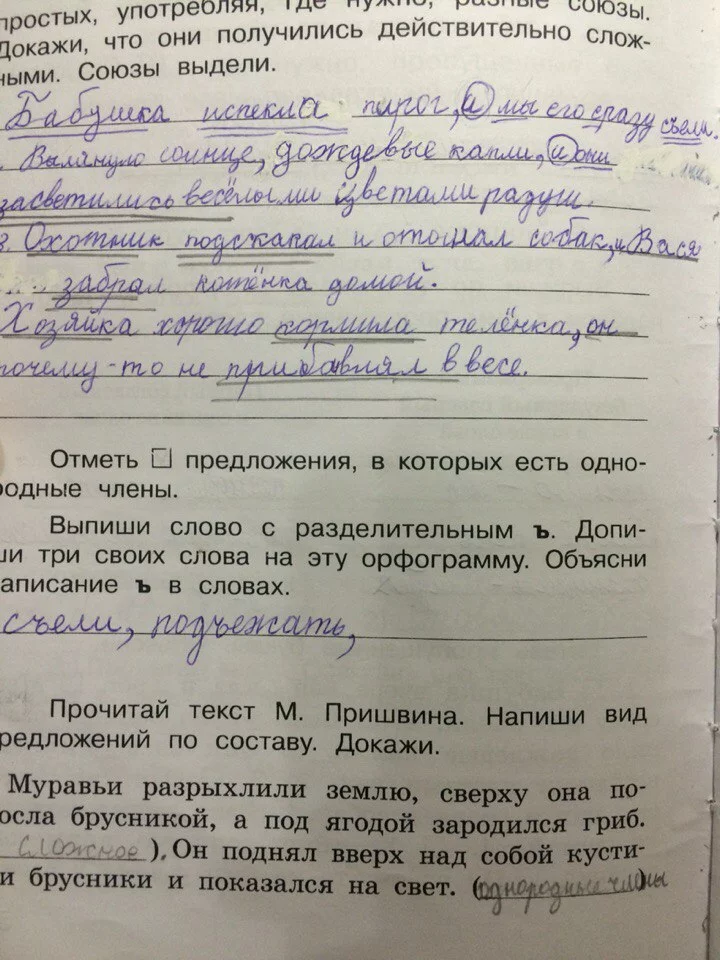 простых, употребляя, где нужно, разные союзы.
Докажи, что они получились действительно слож-
ными. Союзы выдели.
Бабушка испекла пирог, и мы его сразу съели.
. Выглянуло солнце, дождевые капли, и они
засветились весёлыми цветами радуги.
3. Охотник подскакал и отогнал собак, и Вася
забрал котёнка домой.
Хозяйка хорошо кормила телёнка, он
почему-то не прибавлял в весе.
Отметь □ предложения, в которых есть одно-
родные члены.
Выпиши слово с разделительным ъ. Допи-
ши три своих слова на эту орфограмму. Объясни
написание ъ в словах.
съели, подъежать,
Прочитай текст М. Пришвина. Напиши вид
редложений по составу. Докажи.
Муравьи разрыхлили землю, сверху она по-
осла брусникой, а под ягодой зародился гриб.
сложное ). Он поднял вверх над собой кусти-
и брусники и показался на свет. (однородные члены)